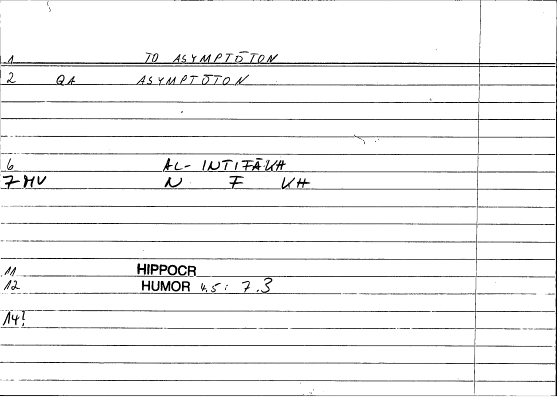 1 TO ASYMPTŌTON
2 QA ASYMPTŌTON
6 AL- INTIFĀKH
7 MV N F KH
11 HIPPOCR
12 HUMOR 4.5: 7.3
14?